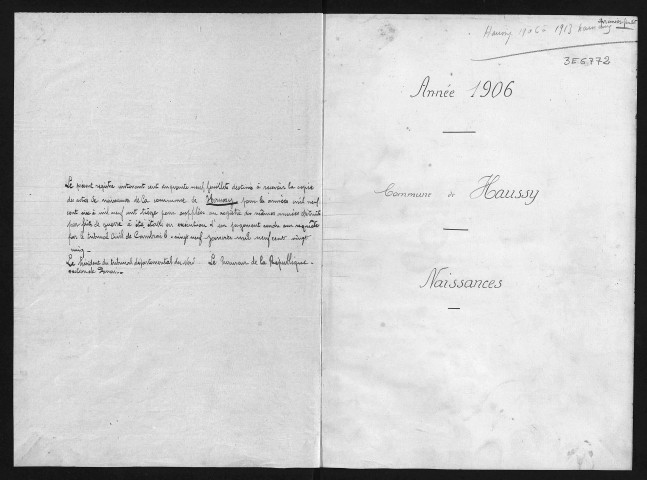 Le présent registre contenant cent cinquante neuf feuillets destinés à recevoir la copie
des actes de naissances de la commune de Haussy pour les années mil neuf
cent six à mil neuf cent treize pour suppléer au registre des mêmes années détruits
par faits de guerre à été établi en exécution d'un jugement rendu sur requête
par le tribunal civil de Cambrai le vingt neuf janvier mil neuf cent vingt
cinq.-
Le Président du tribunal départemental du Nord Le Procureur de la République.
section de
Haussy 1906 à 1913
3E6772
Année 1906
Commune de Haussy
Naissances